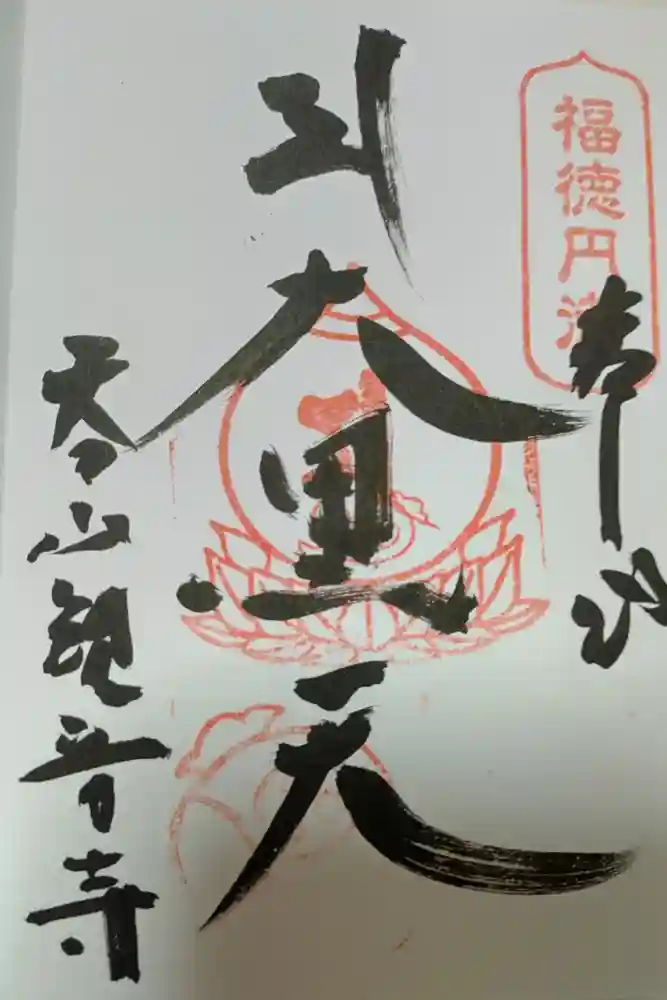 福徳円満
奉拝
大黒天
呑山観音寺